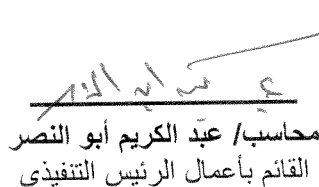 محاسب/ عبد الكريم أبو النصر
القائم بأعمال الرئيس التنفيذى